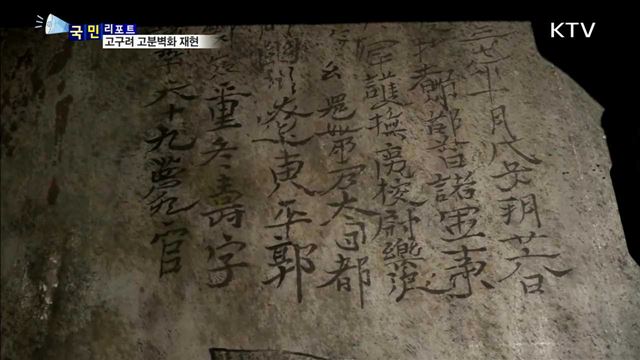 국민 리포트
고구려 고분벽화 재현
KTV
三年十月戊子朔廿
節都督諸軍事
軍護撫夷校尉樂浪
玄菟帶方太守都
幽州遼東平郭
里冬壽字
年六十九薨官